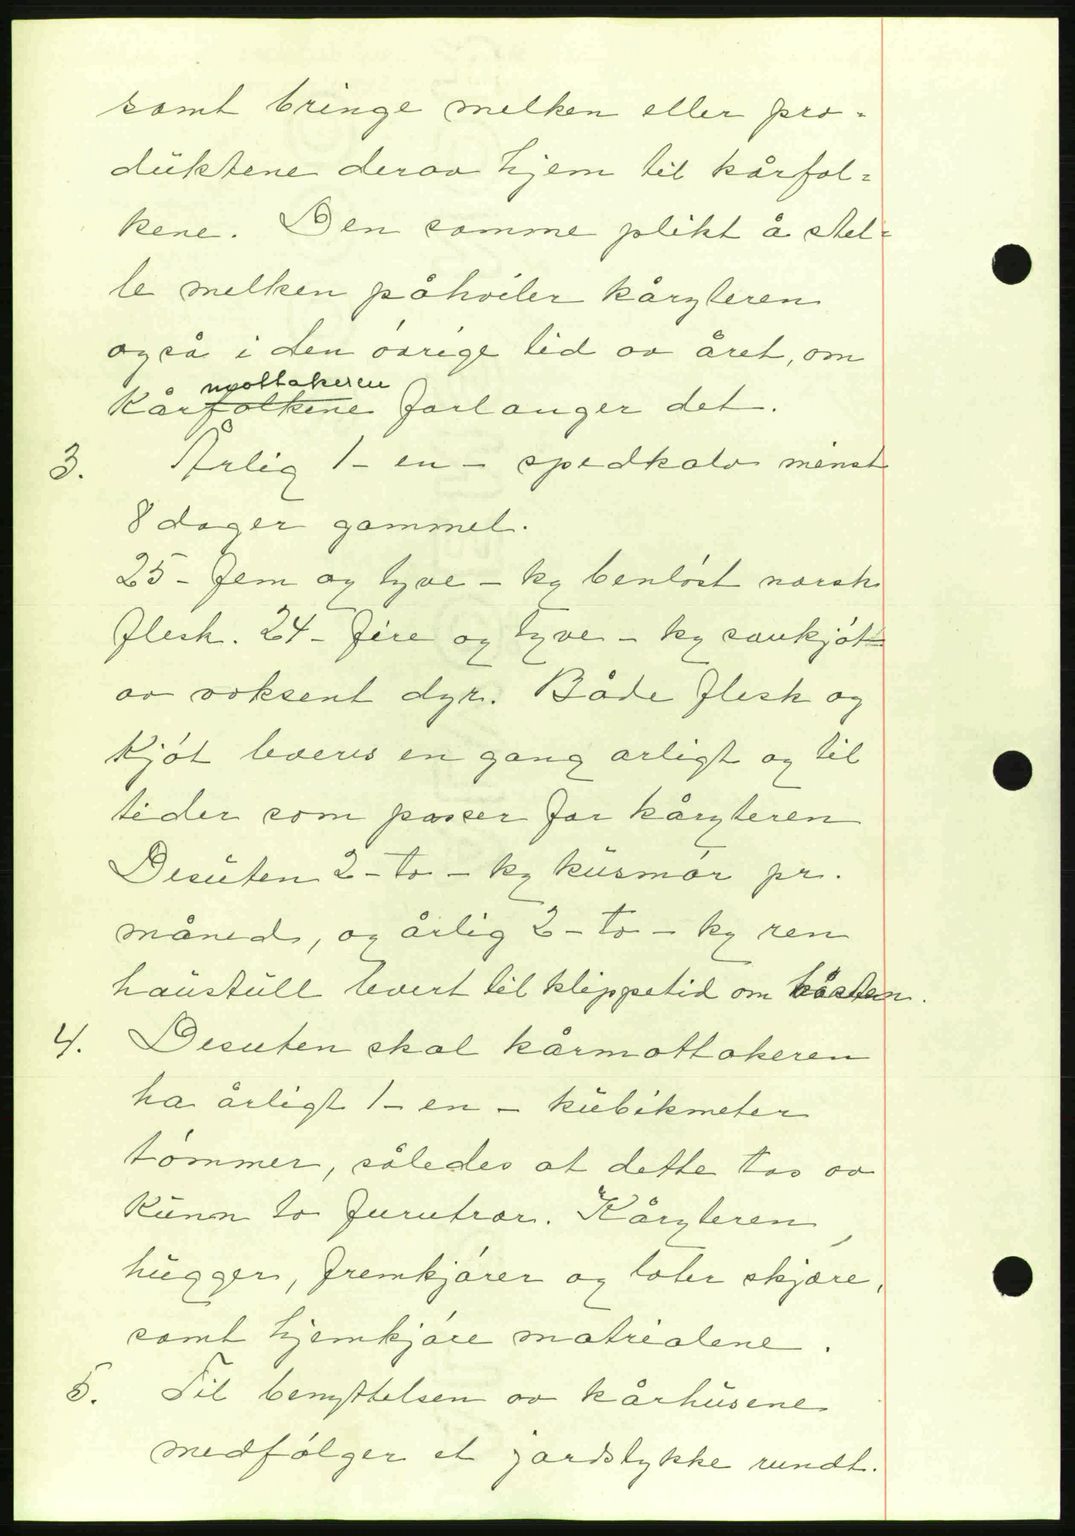 samt bringe melken eller pro=
duktene derav hjem til kårfol=
kene. Den samme plikt å stel=
le melken påhviler kåryteren
også i den óvrige tid av året, om
mottakeren
Kårfolkene forlanger det.
3. Årlig 1 - en - spedkalv minst
8 dager gammel.
25 - fem og tyve - kg benlóst norsk
flesk. 24 - fire og tyve - kg saukjót
av voksent dyr. Både flesk og
Kjót leveres en gang arligt og til
tider som passer for kåryteren
Desuten 2 - to - kg kusmór pr.
måned, og årlig 2 - to - kg ren
haustull levert til klippetid om hósten.
4. Desuten skal kårmottakeren
ha årligt 1 - en - kubikmeter
tómmer, således at dette tas av
Kunn to furutrær. Kåryteren
hugger, fremkjórer og later skjære,
samt hjemkjóre matrialene.
5. Til benyttelsen av kårhusene
medfólger et jordstykke rundt.